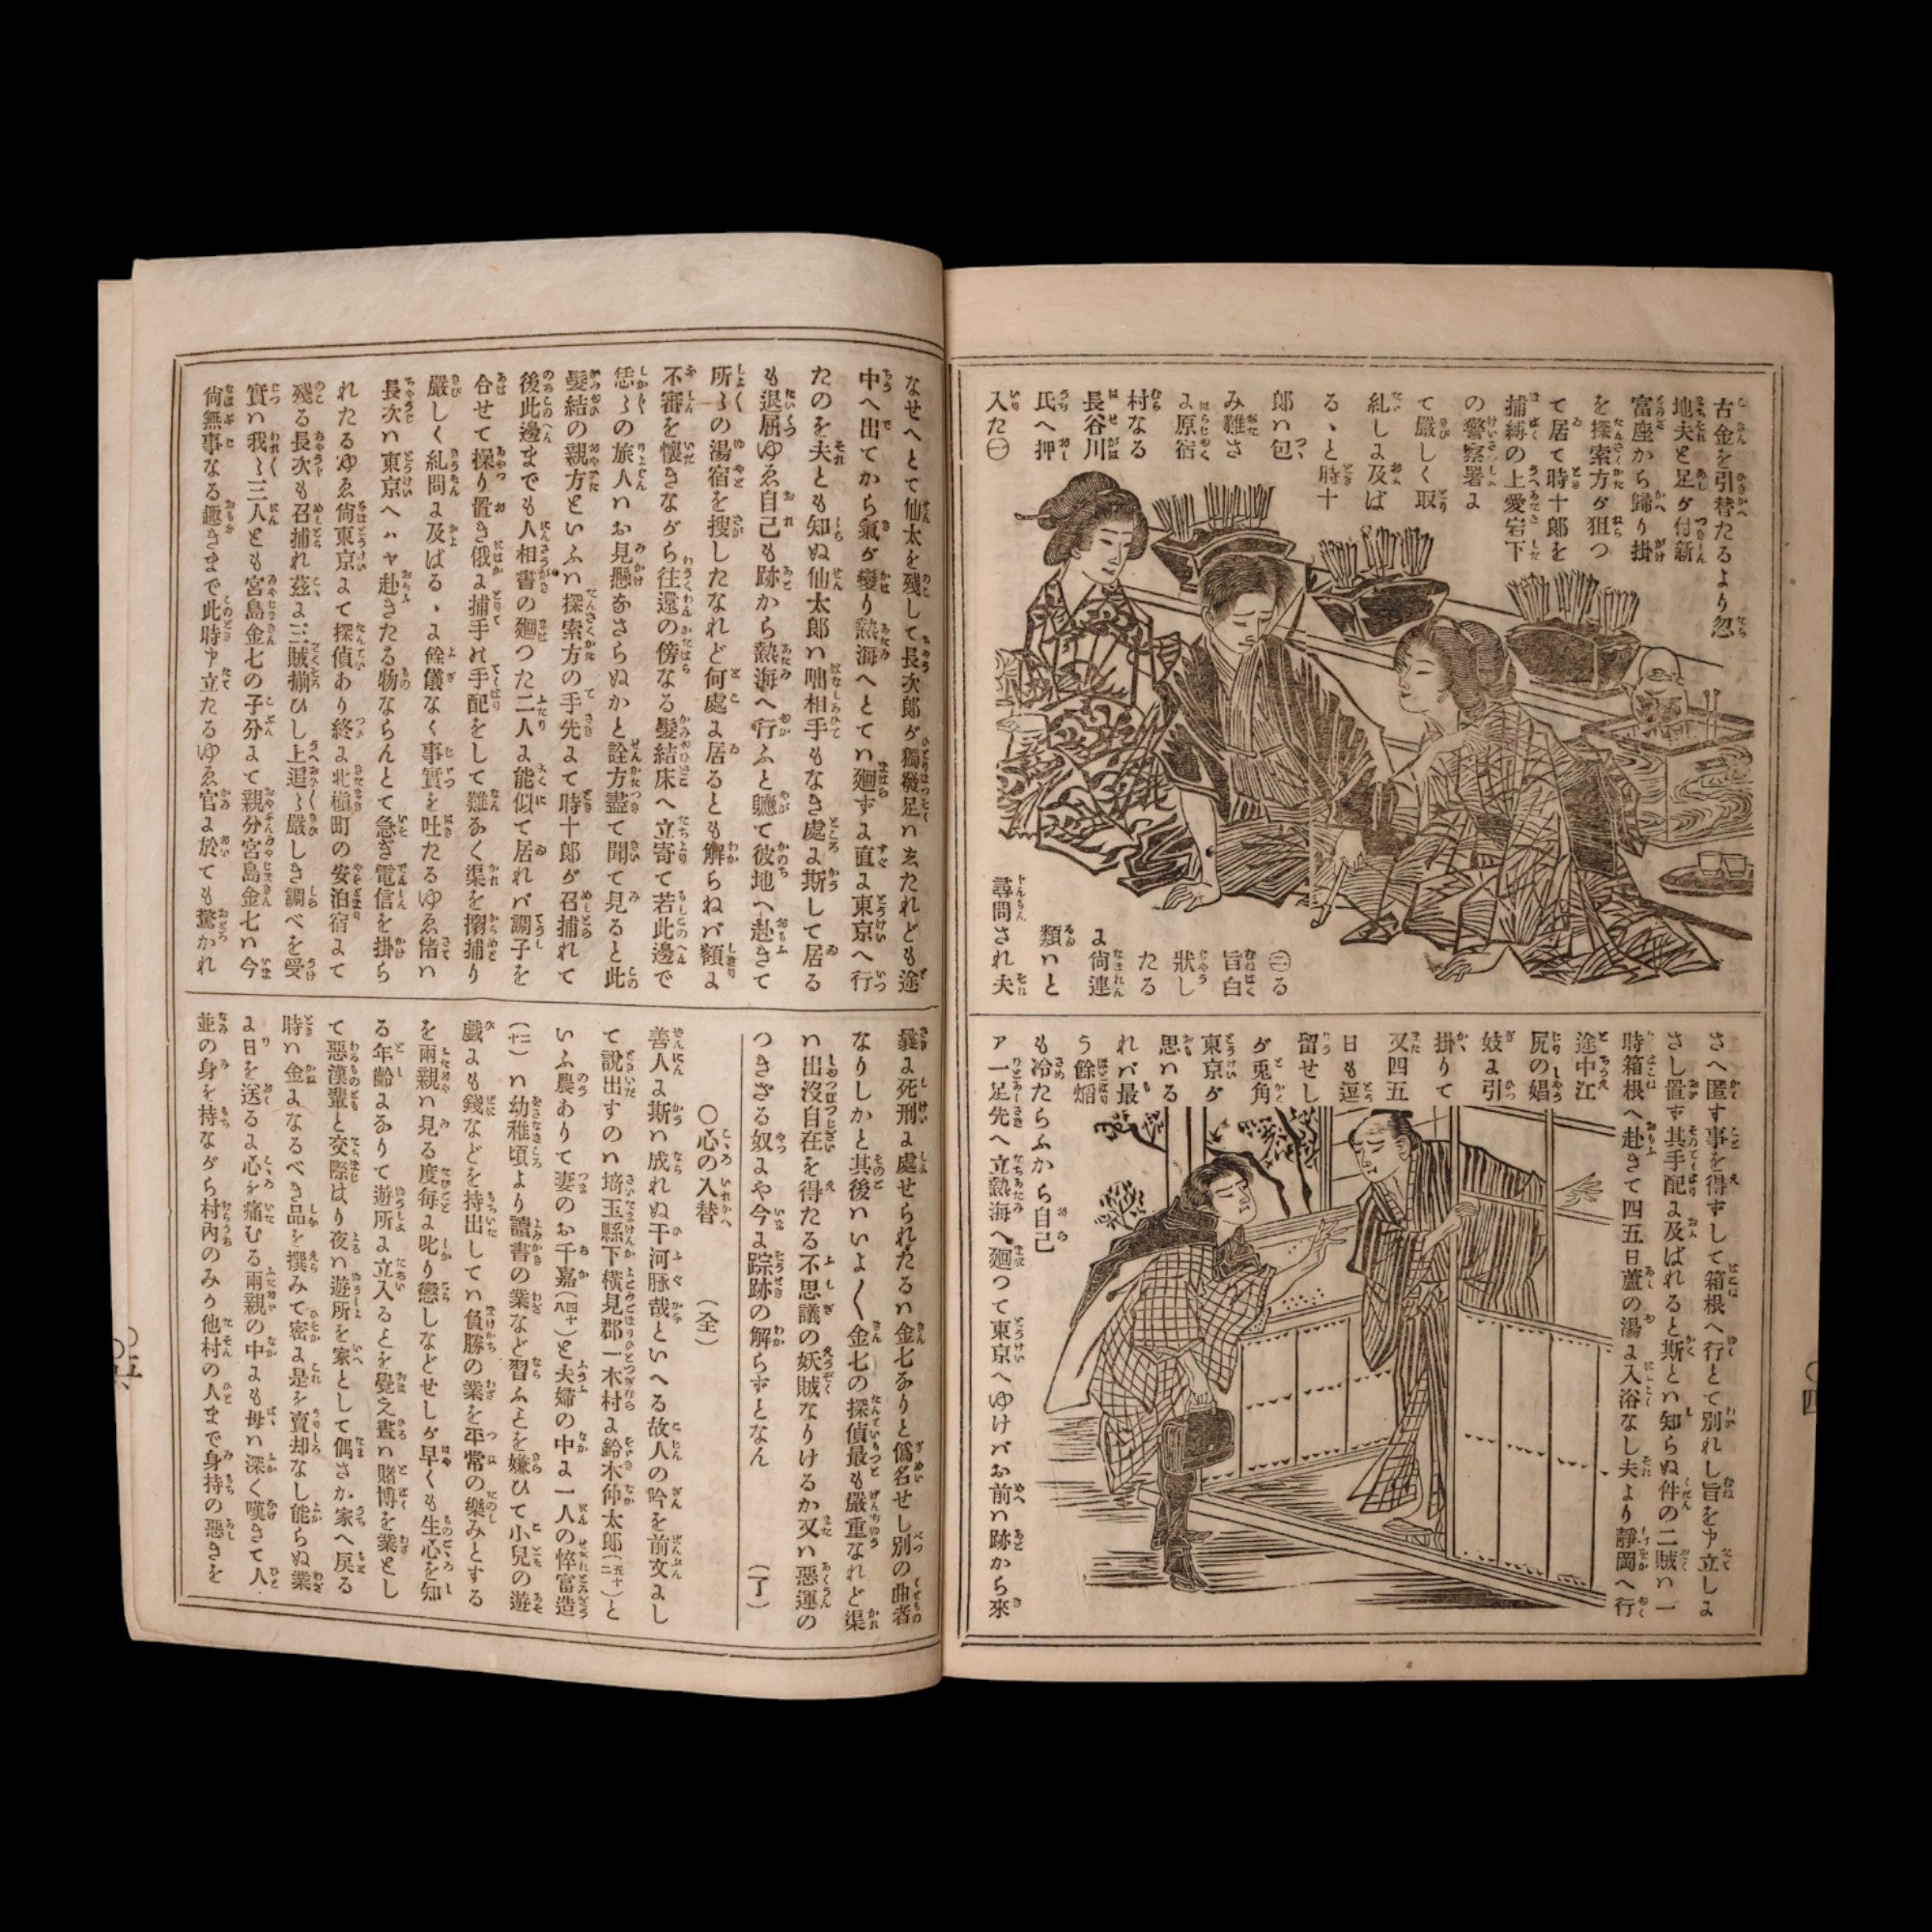 古金を引替たるより忽
地夫と足が付新
富座から歸り掛
を探索方が狙つ
て居て時十郎を
捕縛の上愛宕下
の警察署よ
て嚴しく取
糺しよ及ば
るゝと時十
郎ハ包
み難さ
よ原宿
村なる
長谷川
氏へ押
入た㊀
㊁る
旨白
狀し
たる
よ尙連
類ハと
尋問され夫
さへ匿す事を得ずして箱根へ行とて別れし旨を申立しよ
さし置ず其手配よ及ばれると斯とハ知らぬ件の二賊ハ一
時箱根へ赴きて四五日蘆の湯よ入浴なし夫より靜岡へ行
途中江
尻の娼
妓よ引
掛りて
又四五
日も逗
留せし
が兎角
東京が
思ハる
れバ最
う餘焰
も冷たらふから自己
ア一足先へ立熱海へ廻つて東京へゆけバお前ハ跡から來
なせへとて仙太を殘して長次郎が獨發足ハ爲たれども途
中へ出てから氣が變り熱海へとてハ廻ずよ直よ東京へ行
たのを夫とも知ぬ仙太郎ハ咄相手もなき處よ斯して居る
も退屈ゆゑ自己も跡から熱海へ行ふと軈て彼地へ赴きて
所〻の湯宿を搜したなれど何處よ居るとも解らねバ頻よ
不審を懷きながら往還の傍なる髮結床へ立寄て若此邊で
恁〻の旅人ハお見懸なさらぬかと詮方盡て聞て見ると此
髮結の親方といふハ探索方の手先よて時十郎が召捕れて
後此邊までも人相書の廻つた二人よ能似て居れバ調子を
合せて操り置き俄よ捕手れ手配をして難なく渠を搦捕り
嚴しく糺問よ及ばるゝよ餘儀なく事實を吐たるゆゑ偖ハ
長次ハ東京へハヤ赴きたる物ならんとて急ぎ電信を掛ら
れたるゆゑ尙東京よて探偵あり終よ北槇町の安泊宿よて
殘る長次も召捕れ茲よ三賊揃ひし上追〻嚴しき調べを受
實ハ我〻三人とも宮島金七の子分よて親分宮島金七ハ今
尙無事なる趣きまで此時申立たるゆゑ官よ於ても驚かれ
曩よ死刑よ處せられたるハ金七なりと僞名せし別の曲者
なりしかと其後ハいよ〱金七の探偵最も嚴重なれど渠
ハ出沒自在を得たる不思議の妖賊なりけるか又ハ惡運の
つきざる奴よや今よ踪跡の解らずとなん　（了）
○心の入替　（全）
善人よ斯ハ成れぬ干河豚哉といへる故人の吟を前文よし
て說出すのハ埼玉縣下橫見郡一木村よ鈴木仲太郎（五十二）と
いふ農ありて妻のお千嘉（四十八）と夫婦の中よ一人の悴富造
（十二）ハ幼稚頃より讀書の業など習ふことを嫌ひて小兒の遊
戲よも錢などを持出してハ負勝の業を平常の樂みとする
を兩親ハ見る度每よ叱り懲しなどせしが早くも生心を知
る年齡よなりて遊所よ立入ることを覺え晝ハ賭博を業とし
て惡漢輩と交際はり夜ハ遊所を家として偶さか家へ戾る
時ハ金よなるべき品を撰みて密よ是を賣却なし能らぬ業
よ日を送るよ心を痛むる兩親の中よも母ハ深く嘆きて人
並の身を持ながら村內のみか他村の人まで身持の惡きを